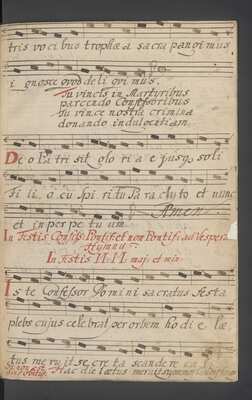 tris vocibus trophæa sacra pangimus
ignosce quod deliquimus.
Tu vincis in Martyribus
parcendo Confessoribus
Tu vince nostra crimina
donando indulgentiam.
Deo Patri sit gloria ejusq; soli
Filio cu Spiritu Paraclyto et nunc
et in perpetuum Amen
In Festis Confess. Pontif. et non Pontif. ad Vesperas
Hymnus
In Festis II. II. maj. et min.
Iste Confessor Domini sacratus festa
plebs cujus celebrat per orbem hodie læ,
tus meruit secreta scandere cæ
Hac die lætus meruit